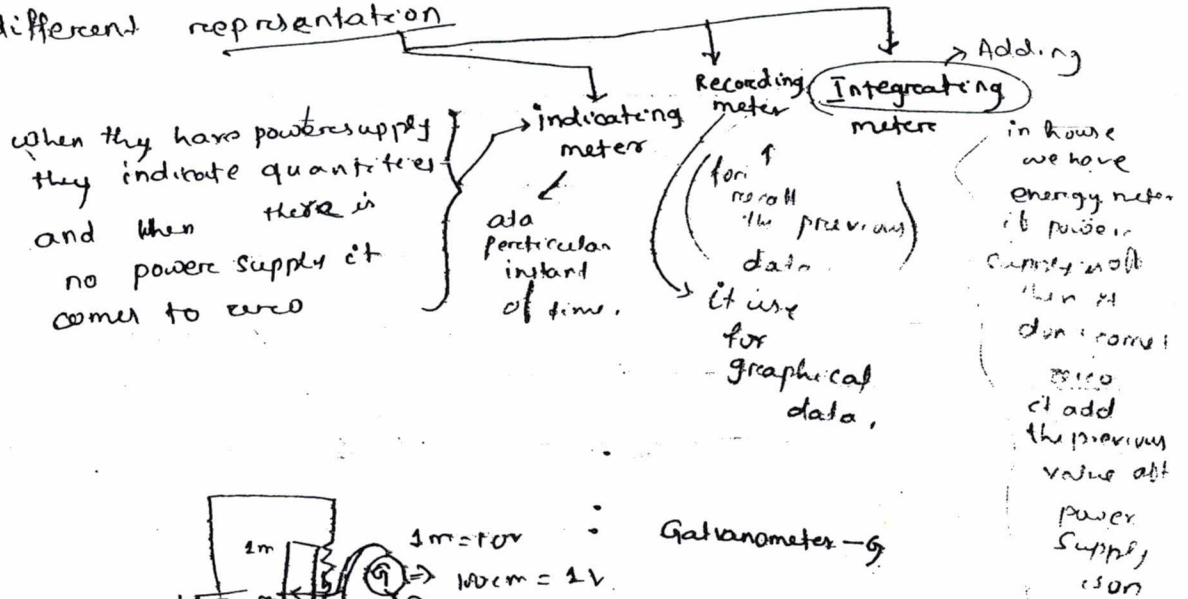 different represntation
When thy have power supply
they indicate quantities
and when there is
no powere supply it
comes to zero
indicating
meter
at a
perticular
instant
of time.
Recording
meter
for
recall
the previous
data
it use
for
graphical
data.
Integreating
metere
Adding
in house
we have
energy meter
if power
supply is off
then it
don't comes
zero
it add
the previous
value aft
power
supply
is on
1m
G
100cm = 1V
Galvanometer - G